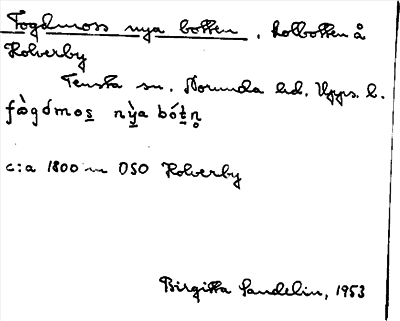 Fogdmoss nya botten, kolbotten å
Holverby
Tensta sn. Norunda hd. Upps. l.
fògdmos nỳa bótn̥
c:a 1800 m OSO Holverby
Birgitta Sandelin, 1953